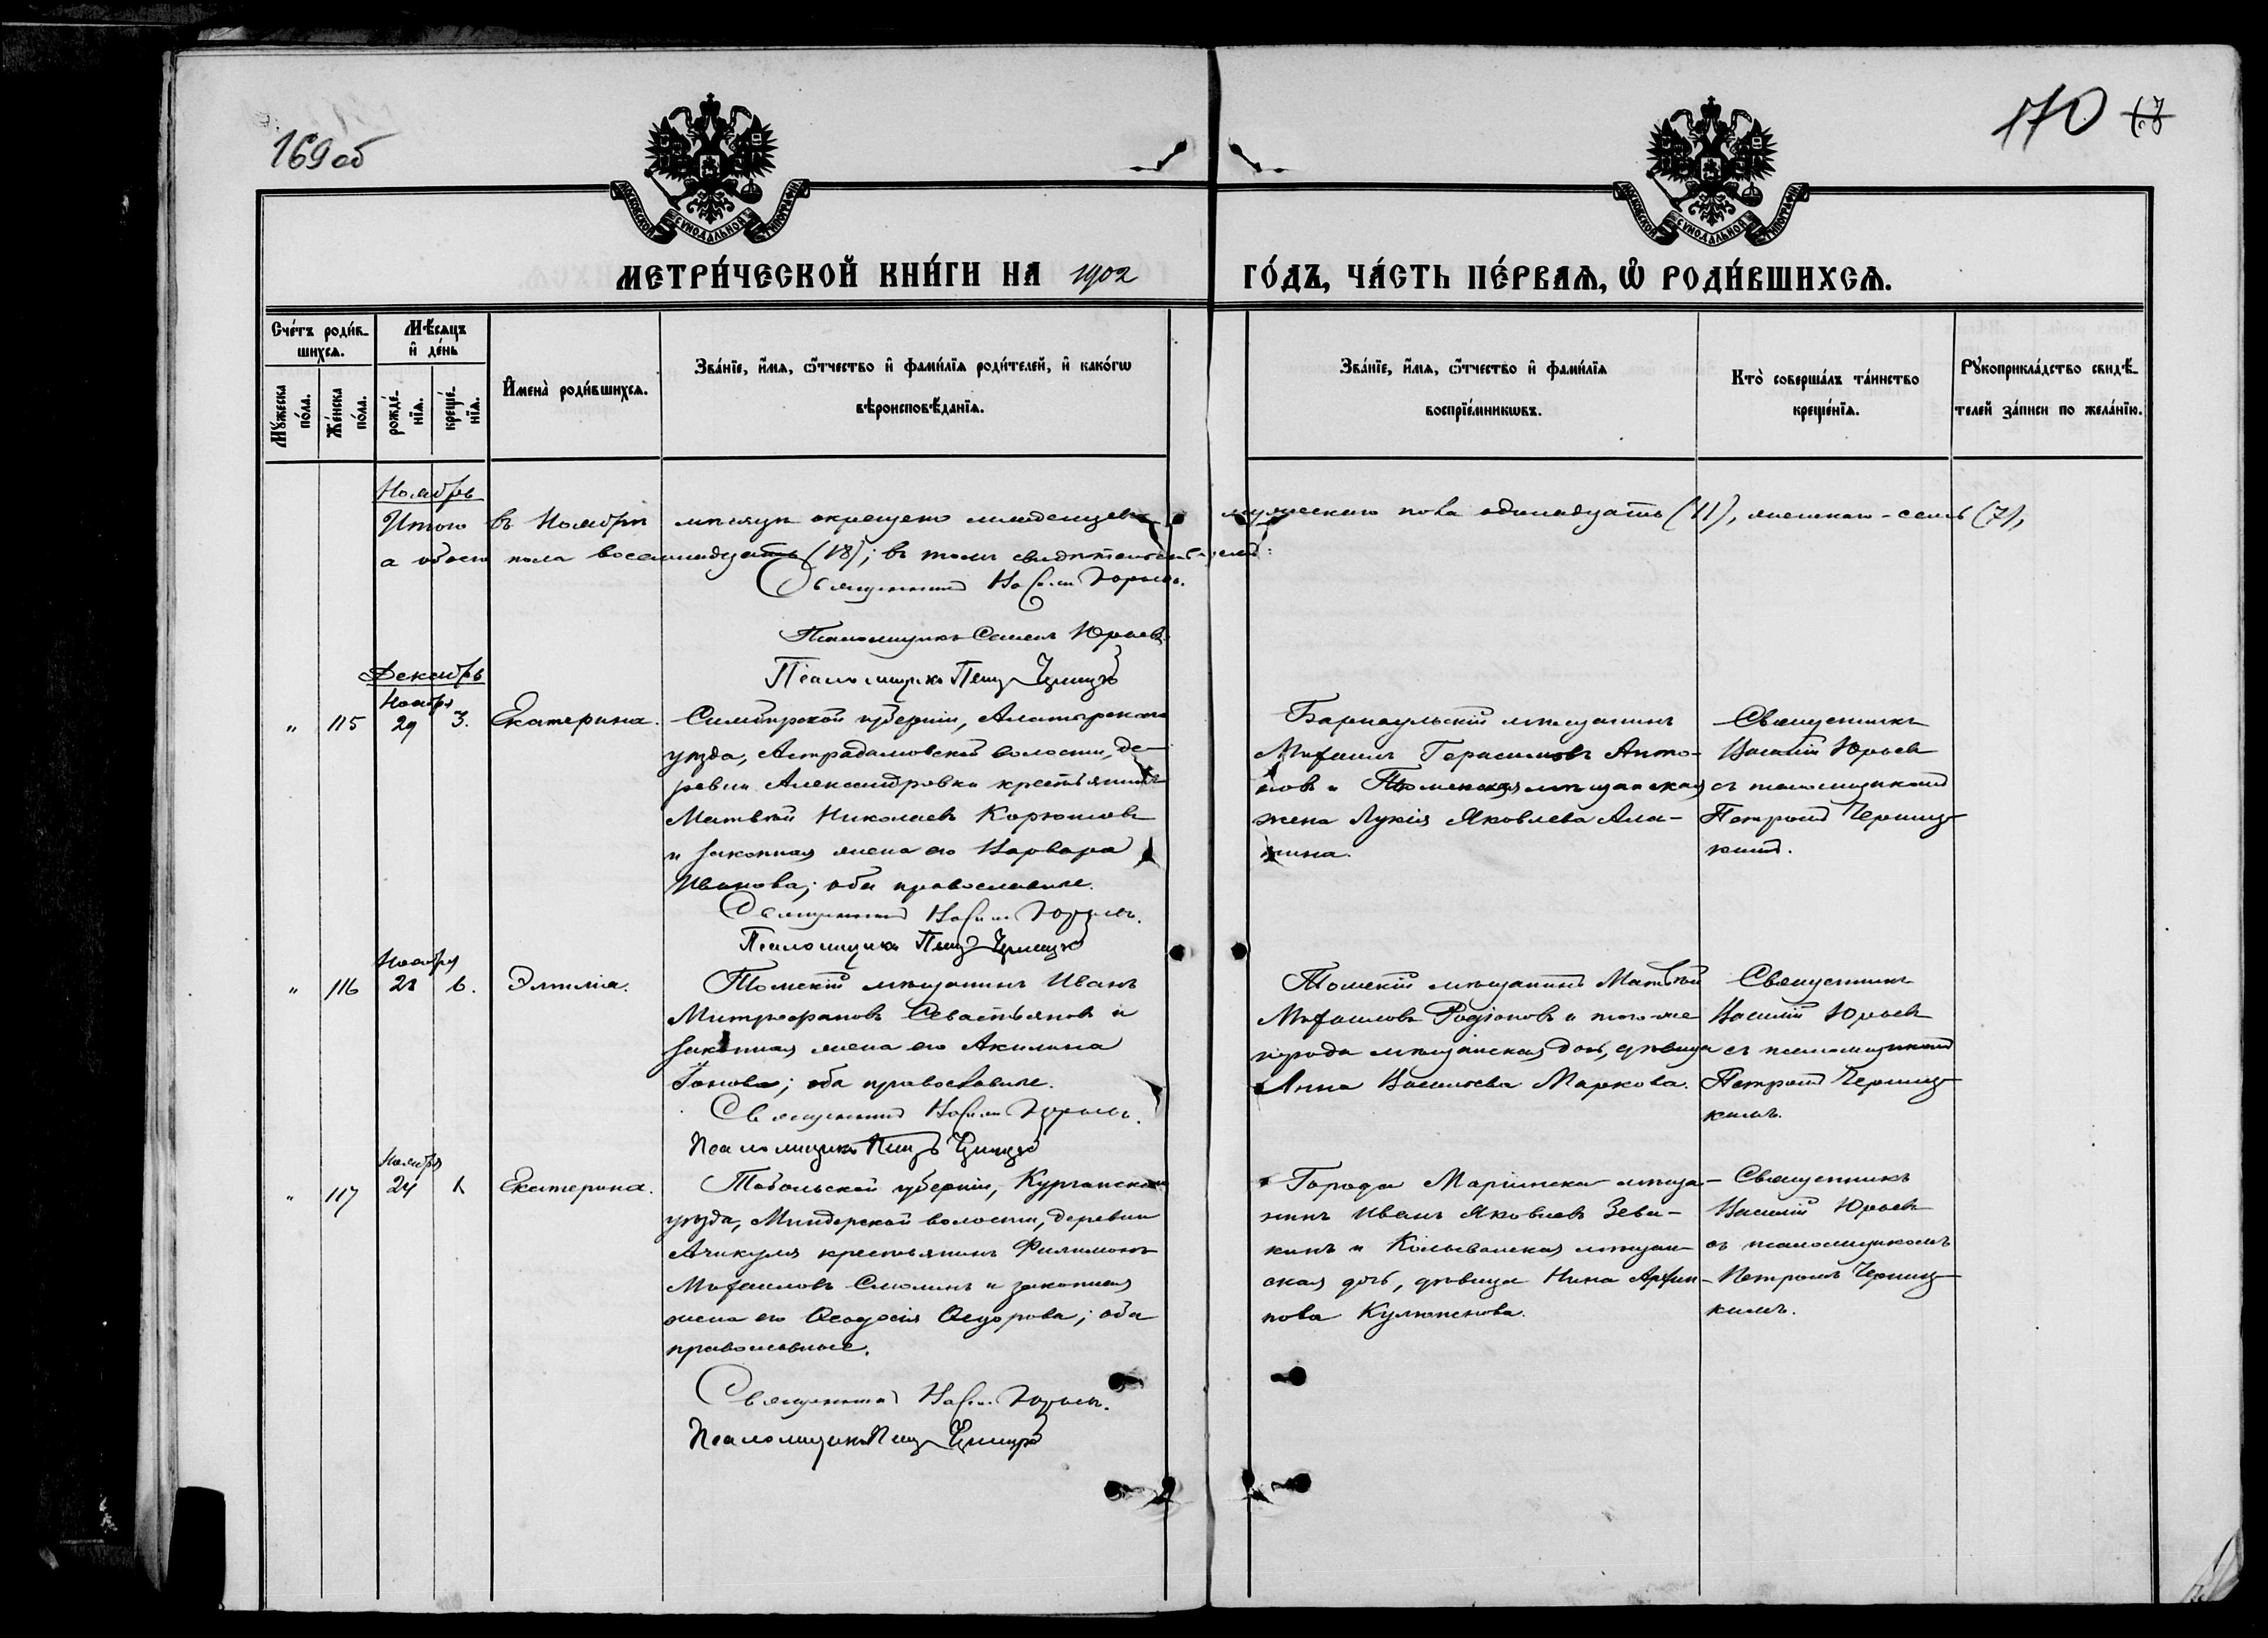 169 об
170
МОСКОВСКОЙ СѴНОДАЛЬНОЙ ТИПОГРАФІИ
МОСКОВСКОЙ СѴНОДАЛЬНОЙ ТИПОГРАФІИ
МЕТРИ́ЧЕСКОЙ КНИ́ГИ НА 1902 ГО́ДЪ, ЧА́СТЬ ПЕ́РВАѦ, Ѽ РОДИ́ВШИХСѦ.
Сче́тъ роди́в-
шихсѧ.
Мꙋ́жеска по́ла.
Же́нска по́ла.
Мѣ́сѧцъ
и҆ де́нь
рожде́-
нїѧ.
креще́-
нїѧ.
И҆мена̀ роди́вшихсѧ.
Зва́нїе, и҆́мѧ, ѻ҆́тчество и҆ фами́лїѧ роди́телей, и҆ како́гѡ
вѣроисповѣ́данїѧ.
Зва́нїе, и҆́мѧ, ѻ҆́тчество и҆ фами́лїѧ
воспрїе́мникѡвъ.
Кто̀ соверша́лъ та́инство
креще́нїѧ.
Рꙋкоприкла́дство свидѣ́-
телей за́писи по жела́нїю.
Ноябрь
Итого въ Ноябрѣ мѣсяцѣ окрещено младенцевъ мужескаго пола одинадцать (11), женскаго - семь (7),
а обоего пола восемнадцать (18); въ томъ свидѣтельствуемъ:
Священникъ Василій Юрьевъ.
Псаломщикъ Семенъ Юрьевъ.
Псаломщикъ Петръ Черницкій
Декабрь
Ноября
" 115 29 3. Екатерина.
Симбирской губерніи, Алатырскаго
уѣзда, Астрадамовской волости, де-
ревни Александровки крестьянинъ
Матвѣй Николаевъ Корюшовъ
и законная жена его Варвара
Иванова; оба православные.
Священникъ Василій Юрьевъ.
Псаломщикъ Петръ Черницкій
Барнаульскій мѣщанинъ
Михаилъ Герасимовъ Анто-
новъ и Тюменская мѣщанская
жена Лукія Яковлева Ала-
кина.
Священникъ
Василій Юрьевъ
съ псаломщикомъ
Петромъ Черниц-
кимъ.
Ноября
" 116 28 6. Эмилія.
Томскій мѣщанинъ Иванъ
Митрофановъ Севастьяновъ и
законная жена его Акилина
Іонова; оба православные.
Священникъ Василій Юрьевъ.
Псаломщикъ Петръ Черницкій
Томскій мѣщанинъ Матвѣй
Михаиловъ Родіоновъ и того-же
города мѣщанская дочь, дѣвица
Анна Васильева Маркова.
Священникъ
Василій Юрьевъ
съ псаломщикомъ
Петромъ Черниц-
кимъ.
Ноября
" 117 24 Екатерина.
Тобольской губерніи, Курганскаго
уѣзда, Мендерской волости, деревни
Ачикуля крестьянинъ Филимонъ
Михаиловъ Смолинъ и законная
жена его Ѳеодосія Ѳедорова; оба
православные.
Священникъ Василій Юрьевъ.
Псаломщикъ Петръ Черницкій
Города Маріинска мѣща-
нинъ Иванъ Яковлевъ Зева-
кинъ и Колыванская мѣщан-
ская дочь, дѣвица Нина Архип-
пова
Священникъ
Василій Юрьевъ
съ псаломщикомъ
Петромъ Черниц-
кимъ.